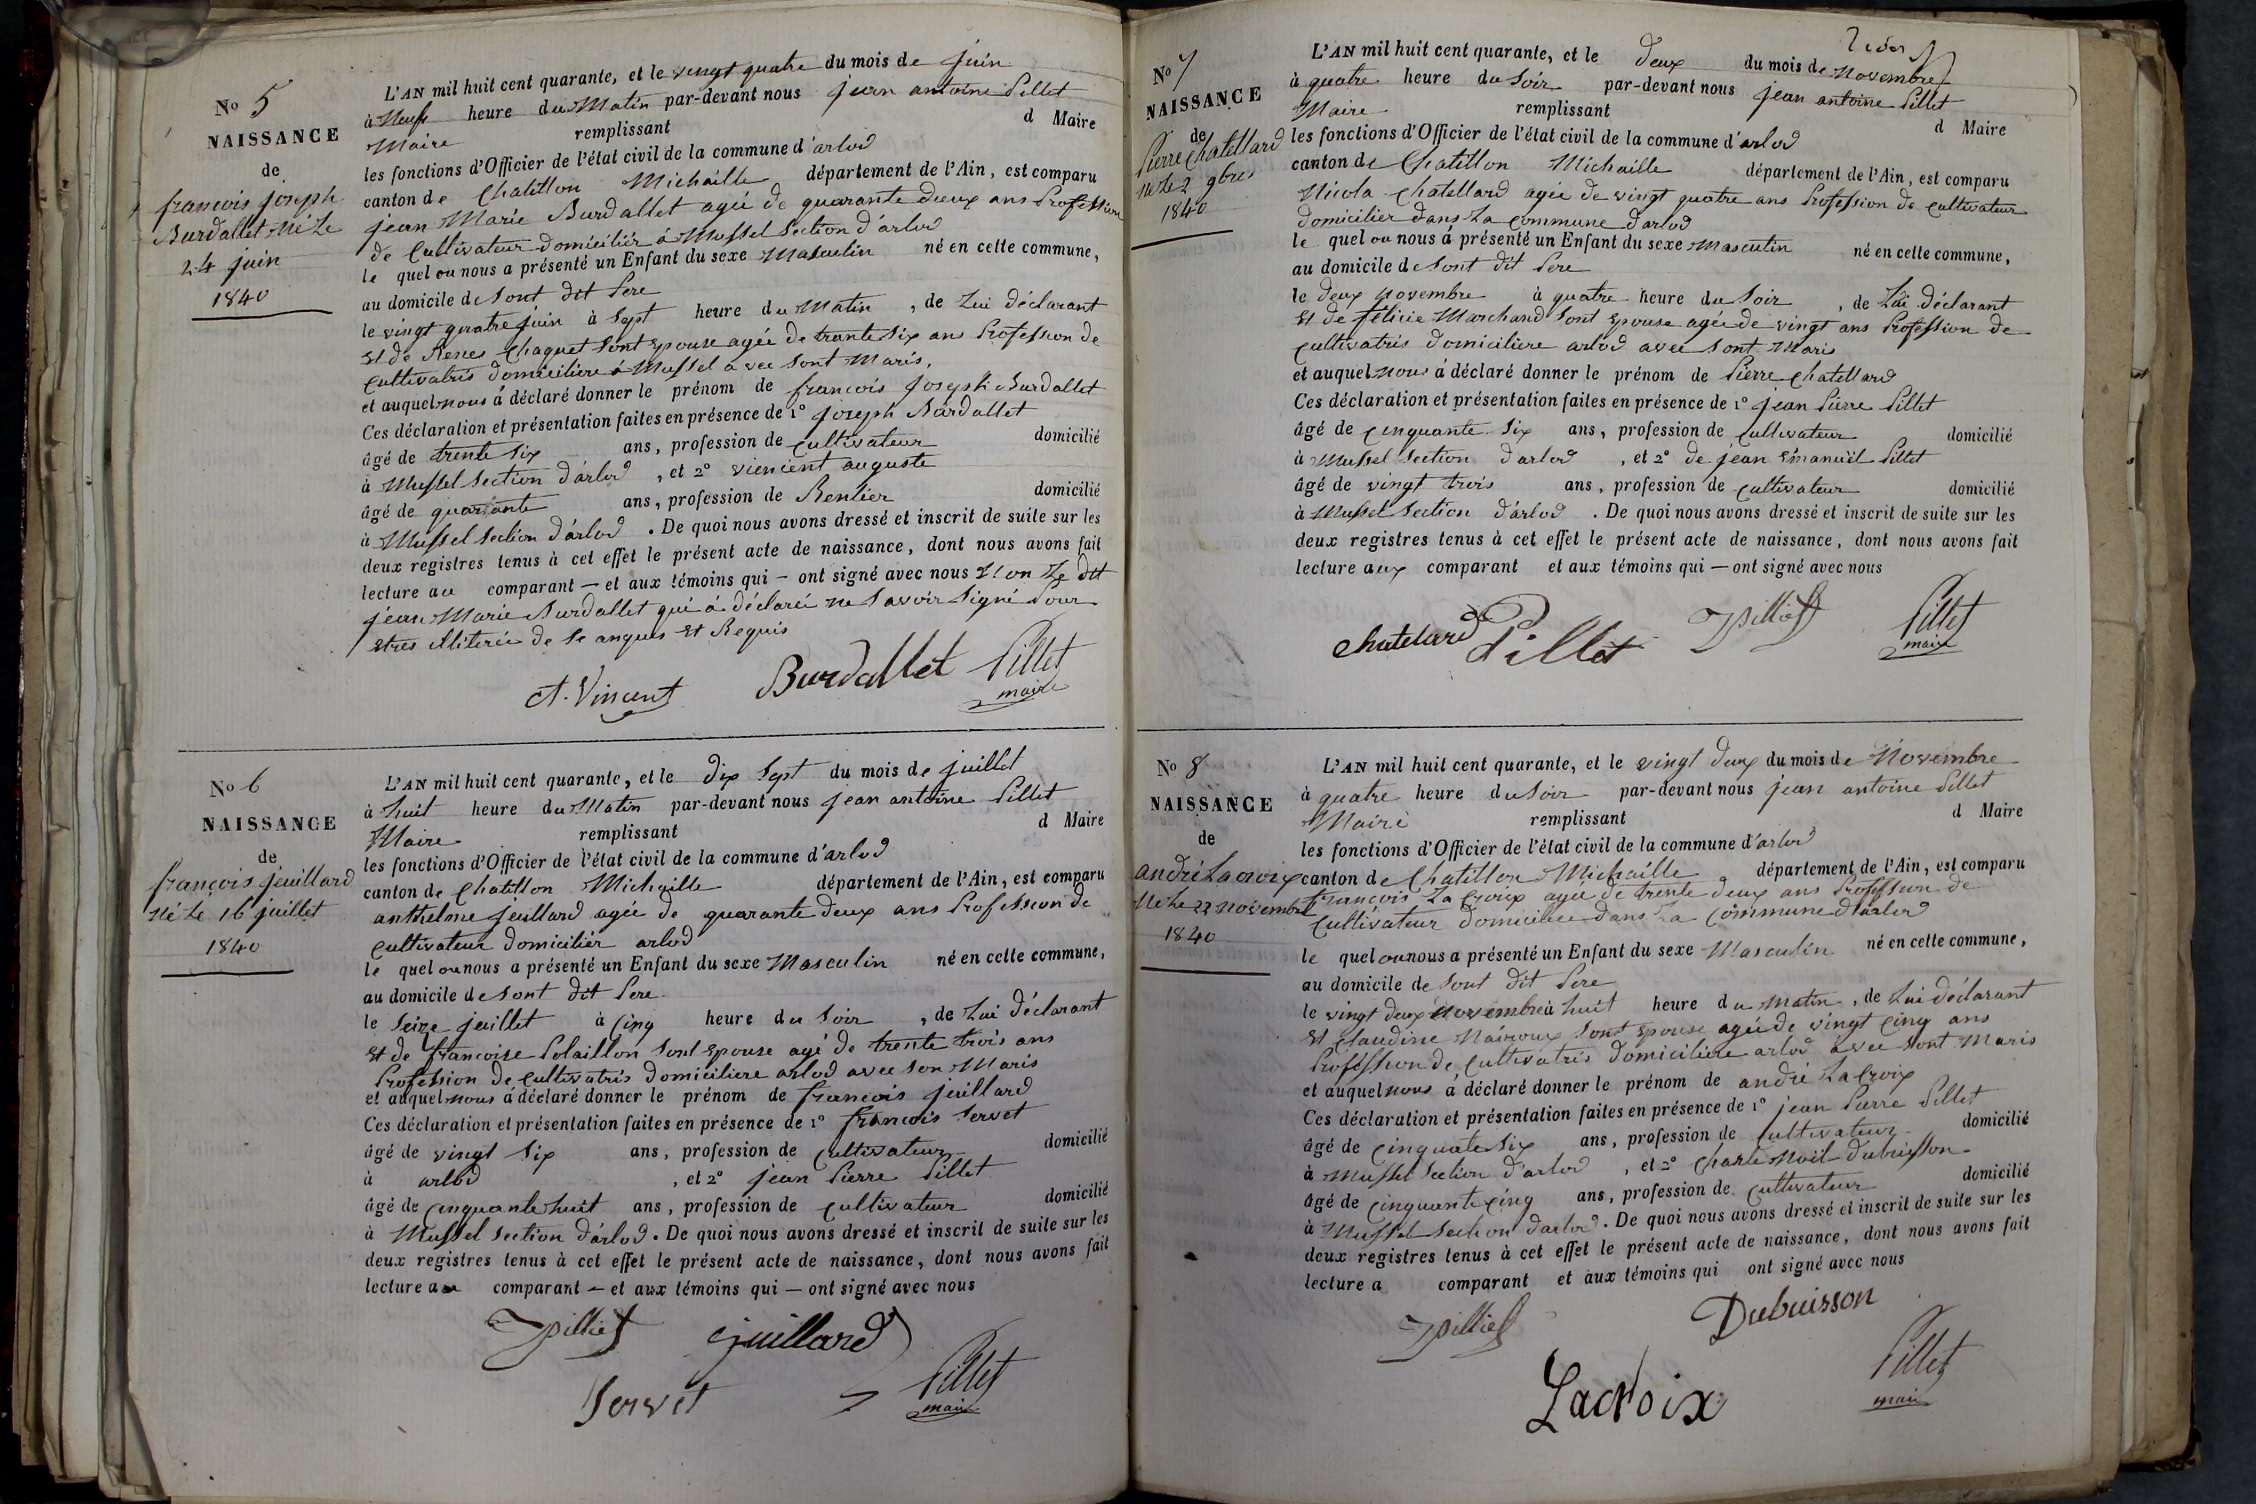 No 5
NAISSANCE
de
francois joseph
Burdallet Né Le
24 juin
1840
L'AN mil huit cent quarante, et le vingt quatre du mois de juin
à Neuf heure du Matin par-devant nous jean antoine Pillet
Maire remplissant d Maire
les fonctions d'Officier de l'état civil de la commune d'arlod
canton de Chatillon Michaille département de l'Ain, est comparu
jean Marie Burdallet agée de quarante deux ans Profession
de Cultivateur domicilier á Mussel Section d'arlod
le quel ou nous a présenté un Enfant du sexe Masculin né en cette commune,
au domicile de Sont dit Pere
le vingt quatre juin à Sept heure du Matin, de Lui déclarant
Et de Chaquet Sont Epouse agée de trante Six ans Profession de
Cultivatris domiciliere á Mussel avec Sont Maris,
et auquel nous á déclaré donner le prénom de francois Joseph Burdallet
Ces déclaration et présentation faites en présence de 1° joseph Burdallet
âgé de trente Six ans, profession de Cultivateur domicilié
à Mussel Section d'arlod, et 2° viencent auguste
âgé de quarante ans, profession de Rentier domicilié
à Mussel Section d'arlod. De quoi nous avons dressé et inscrit de suite sur les
deux registres tenus à cet effet le présent acte de naissance, dont nous avons fait
lecture au comparant — et aux témoins qui — ont signé avec nous Non Le dit
jean Marie Burdallet qui á déclaréé ne Savoir Signé Pour
Etres illiterée de Se enquis Et Requis
A. Vincent Burdallet Pillet
maire
No 6
NAISSANCE
de
françois juillard
Né Le 16 juillet
1840
L'AN mil huit cent quarante, et le dix Sept du mois de juillet
à huit heure du Matin par-devant nous jean antoine Pillet
Maire remplissant d Maire
les fonctions d'Officier de l'état civil de la commune d'arlod
canton de Chatillon Michaille département de l'Ain, est comparu
anthelme juillard agée de quarante deux ans Profession de
Cultivateur domicilier arlod
le quel ou nous a présenté un Enfant du sexe Masculin né en cette commune,
au domicile de Sont dit Pere
le Seize juillet à Cinq heure du Soir, de Lui déclarant
Et de francoise Polaillon Sont Epouse agé de trente trois ans
Profession de Cultivatris domiciliere arlod avec Son Maris
et auquel nous á déclaré donner le prénom de francois juillard
Ces déclaration et présentation faites en présence de 1° francois Servet
âgé de vingt Six ans, profession de Cultivateur domicilié
à arlod, et 2° jean Pierre Pillet
âgé de Cinquante huit ans, profession de Cultivateur domicilié
à Mussel Section d'arlod. De quoi nous avons dressé et inscrit de suite sur les
deux registres tenus à cet effet le présent acte de naissance, dont nous avons fait
lecture au comparant — et aux témoins qui — ont signé avec nous
Pilliet juillard
Servet Pillet
maire
No 7
NAISSANCE
de
Pierre Chatellard
Né Le 2 9bres
1840
L'AN mil huit cent quarante, et le deux du mois de Novembre
à quatre heure du Soir par-devant nous jean antoine Pillet
Maire remplissant d Maire
les fonctions d'Officier de l'état civil de la commune d'arlod
canton de Chatillon Michaille département de l'Ain, est comparu
Nicola Chatellard agée de vingt quatre ans Profession de Cultivateur
domicilier dans La Commune d'arlod
le quel ou nous á présenté un Enfant du sexe Masculin né en cette commune,
au domicile de Sont dit Pere
le deux Novembre à quatre heure du Soir, de Lui déclarant
Et de felicie Marchand Sont Epouse agée de vingt ans Profession de
Cultivatris domiciliere arlod avec Sont Maris
et auquel nous á déclaré donner le prénom de Pierre Chatellard
Ces déclaration et présentation faites en présence de 1° jean Pierre Pillet
âgé de Cinquante Six ans, profession de Cultivateur domicilié
à Mussel Section d'arlod, et 2° de jean Emanuël Pillet
âgé de vingt trois ans, profession de Cultivateur domicilié
à Mussel Section d'arlod. De quoi nous avons dressé et inscrit de suite sur les
deux registres tenus à cet effet le présent acte de naissance, dont nous avons fait
lecture aux comparant et aux témoins qui — ont signé avec nous
Chatelard Pillet Pilliet Pillet
maire
No 8
NAISSANCE
de
andré La croix
Né Le 22 novembre
1840
L'AN mil huit cent quarante, et le vingt deux du mois de Novembre
à quatre heure du Soir par-devant nous jean antoine Pillet
Maire remplissant d Maire
les fonctions d'Officier de l'état civil de la commune d'arlod
canton de Chatillon Michaille département de l'Ain, est comparu
francois La Croix agée de trente deux ans Profession de
Cultivateur domiciliee dans La Commune d'arlod
le quel ou nous a présenté un Enfant du sexe Masculin né en cette commune,
au domicile de Sont dit Pere
le vingt deux Novembre à huit heure du Matin, de Lui déclarant
Et Claudine Sont Epouse agée de vingt Cinq ans
Profession de Cultivatris domiciliere arlod avec Sont Maris
et auquel nous á déclaré donner le prénom de andré La Croix
Ces déclaration et présentation faites en présence de 1° jean Pierre Pillet
âgé de Cinquate Six ans, profession de Cultivateur domicilié
à Mussel Section d'arlod, et 2° Charle Noël Dubuisson
âgé de Cinquante Cinq ans, profession de Cultivateur domicilié
à Mussel Section d'arlod. De quoi nous avons dressé et inscrit de suite sur les
deux registres tenus à cet effet le présent acte de naissance, dont nous avons fait
lecture a comparant et aux témoins qui ont signé avec nous
Pilliet Dubuisson
Lacroix Pillet
maire